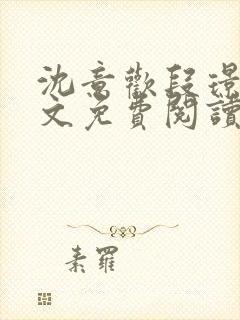 沈意歡段璟
文免費閱讀
素羅